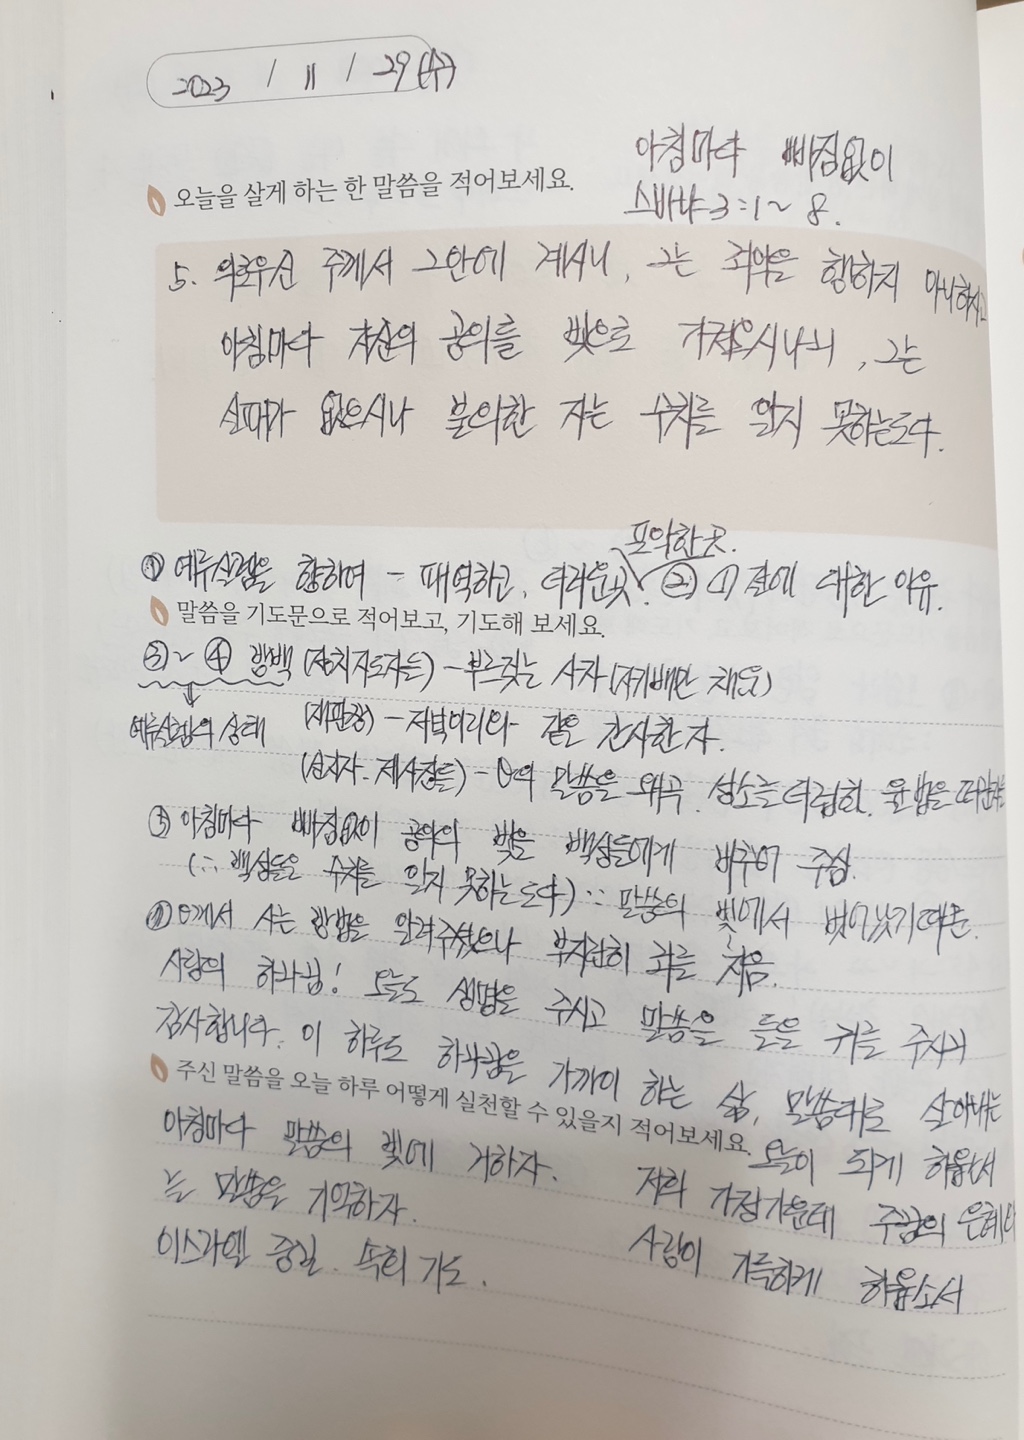 2023 / 11 / 29 (수)
아침마다 빠짐없이
스바냐 3:1~8.
오늘을 살게 하는 한 말씀을 적어보세요.
5. 의로우신 주께서 그안에 계시니, 그는 죄악을 행하지 아니하시고
아침마다 자신의 공의를 빛으로 가져오시나니, 그는
실패가 없으시나 불의한 자는 수치를 알지 못하는도다.
포악한 곳.
① 예루살렘을 향하여 - 패역하고, 더러운곳 ② ①절에 대한 이유.
말씀을 기도문으로 적어보고, 기도해 보세요.
③~④ 방백 (정치지도자들) - 부르짖는 사자 (자기배만 채움)
예루살렘의 상태 (재판장) - 저녁이리와 같은 간사한 자.
(선지자. 제사장들) - 의 말씀을 왜곡. 성소를 더럽힘. 율법을
아침마다 빠짐없이 공의의 빛을 백성들에게 비추어 주심.
(∴ 백성들은 수치를 알지 못하는도다) ∵ 말씀의 빛에서 벗어났기때문.
께서 사는 방법을 알려주셨으나 부지런히 죄를 지음.
사랑의 하나님! 오늘도 생명을 주시고 말씀을 들을 귀를 주시니
감사합니다. 이 하루도 하나님을 가까이 하는 삶, 말씀대로 살아내는
주신 말씀을 오늘 하루 어떻게 실천할 수 있을지 적어보세요.
오늘이 되게 하옵소서
아침마다 말씀의 빛에 거하자.
저희 가정가운데 주님의 은혜와
는 말씀을 기억하자.
사랑이 가득하게 하옵소서
이스라엘 중일. 속회 기도.